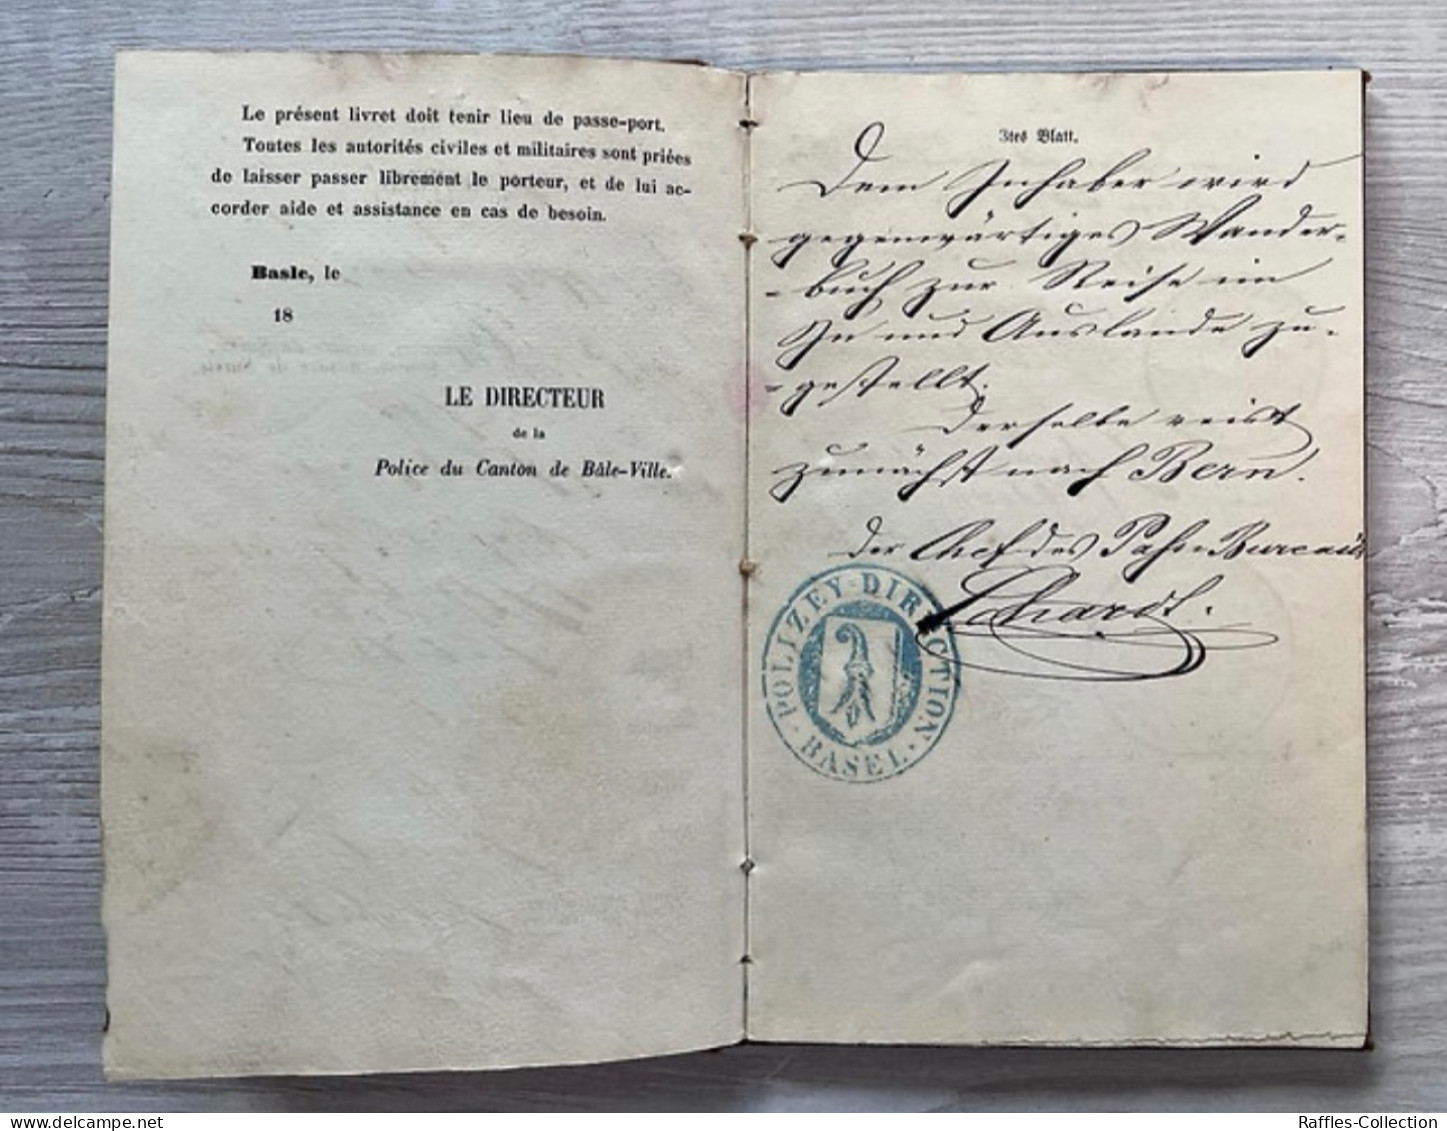 Le présent livret doit tenir lieu de passe-port.
Toutes les autorités civiles et militaires sont priées
de laisser passer librement le porteur, et de lui ac-
corder aide et assistance en cas de besoin.
Basle, le
18
LE DIRECTEUR
de la
Police du Canton de Bâle-Ville.
3tes Blatt.
Dem Inhaber wird
gegenwärtiges Wander-
-buch zur Reise im
In und Auslande zu-
-gestellt.
Derselbe reist
zunächst nach Bern.
Der Chef des Paß-Bureau
POLIZEY-DIRECTION
BASEL
Raffles-Collection